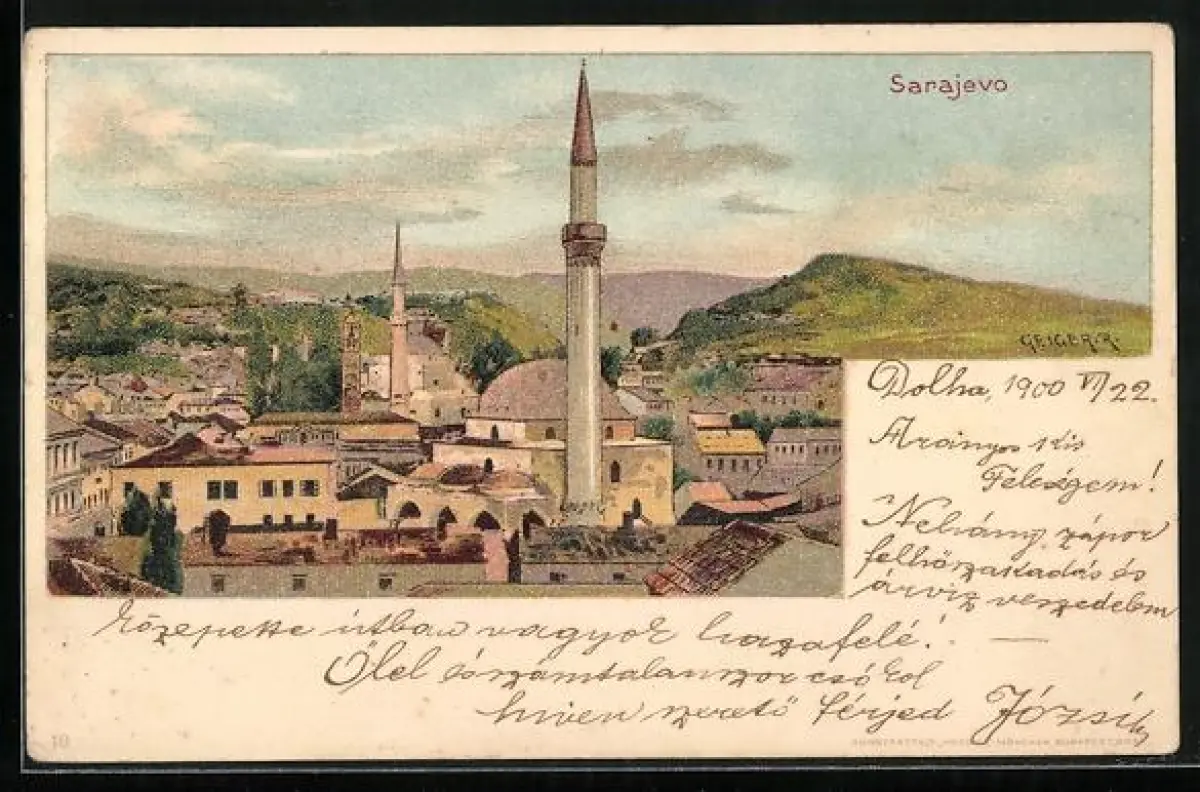 Sarajevo
GEIGER R.
Dolha, 1900 VI/22.
Aranyos kis
Feleségem!
Nehány zápor
felhőszakadás és
árvíz veszedelem
közepette útban vagyok hazafelé! —
Ölel és számtalanszor csókol
hiven szerető férjed Józsi
10